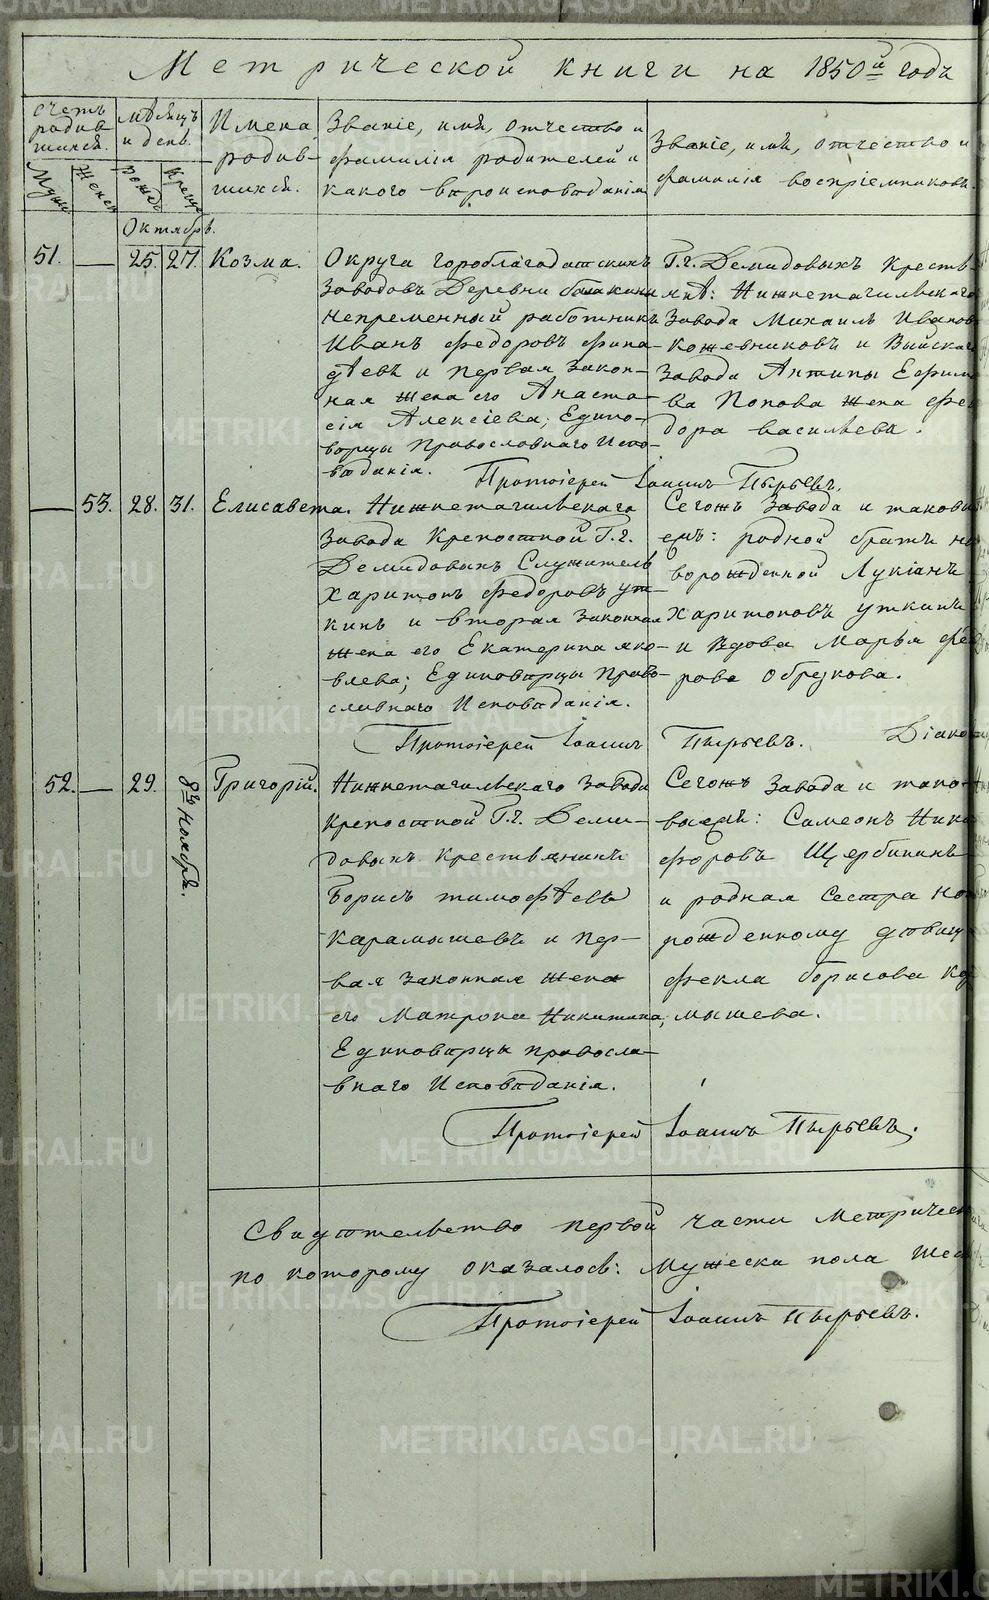 Метрической книги на 1850й годъ
счетъ родившихся.
Муж. Женск.
мѣсяцъ и день.
Рожд. Крещ.
Имена родившихся.
Званіе, имя, отчество и фамилія родителей и какого вѣроисповѣданія
Званіе, имя, отчество и фамилія воспріемниковъ.
Октябрь.
51. — 25. 27. Козма.
Округа Гороблагодатскихъ
Заводовъ Деревни Балакиной
непременный работникъ
Иванъ Федоровъ Фина-
дѣевъ и первая закон-
ная жена его Анаста-
сія Алексіева; Едино-
верцы Православнаго Испо-
вѣданія.
Г.г. Демидовыхъ Крестья-
Нижнетагильскаго
Завода Михаилъ Иванов
Кожевниковъ и Выйскаго
Завода Антипы Ефимо
ва Попова жена Фео
дора Васильева.
Протоіерей Іоаннъ Пырьевъ.
— 53. 28. 31. Елисавета.
Нижнетагильскаго
Завода Крепостной Г.г.
Демидовыхъ Служитель
Харитонъ Федоровъ Ут-
кинъ и вторая законная
жена его Екатерина Яко-
влева; Единоверцы Право-
славнаго Исповѣданія.
Сегожъ Завода и таковы
ежъ: родной братъ но
ворожденной Лукіанъ
Харитоновъ Уткинъ
и Вдова Марья Фео
рова Обрезкова.
Протоіерей Іоаннъ Пырьевъ. Діакон
52. — 29. 8го Ноября. Григорій.
Нижнетагильскаго Завода
Крепостной Г.г. Деми-
довыхъ Крестьянинъ
Борисъ Тимофѣевъ
Карамышевъ и пер-
вая законная жена
его Матрона Никитина;
Единоверцы правосла-
внаго Исповѣданія.
Сегожъ Завода и тако-
выежъ: Симеонъ Ники
форовъ Щербининъ
и родная сестра ново
рожденному дѣвица
Фекла Борисова Кар
мышева.
Протоіерей Іоаннъ Пырьевъ.
Свидѣтельство первой части Метрическ
по которому оказалось: мужеска пола
Протоіерей Іоаннъ Пырьевъ.
METRIKI.GASO-URAL.RU